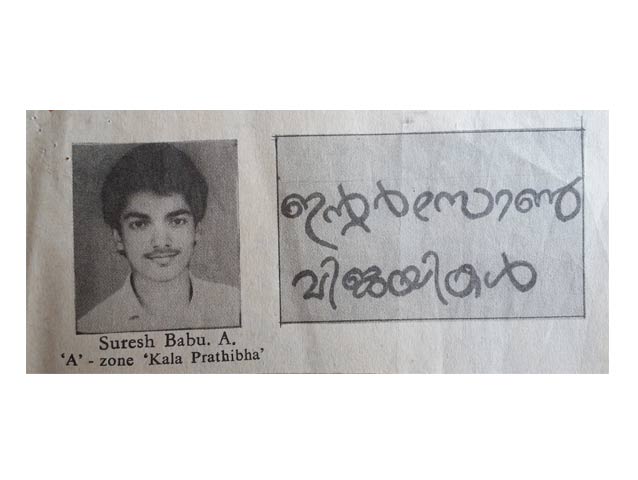 ഇന്റർസോൺ
വിജയികൾ
Suresh Babu. A.
'A' - zone 'Kala Prathibha'